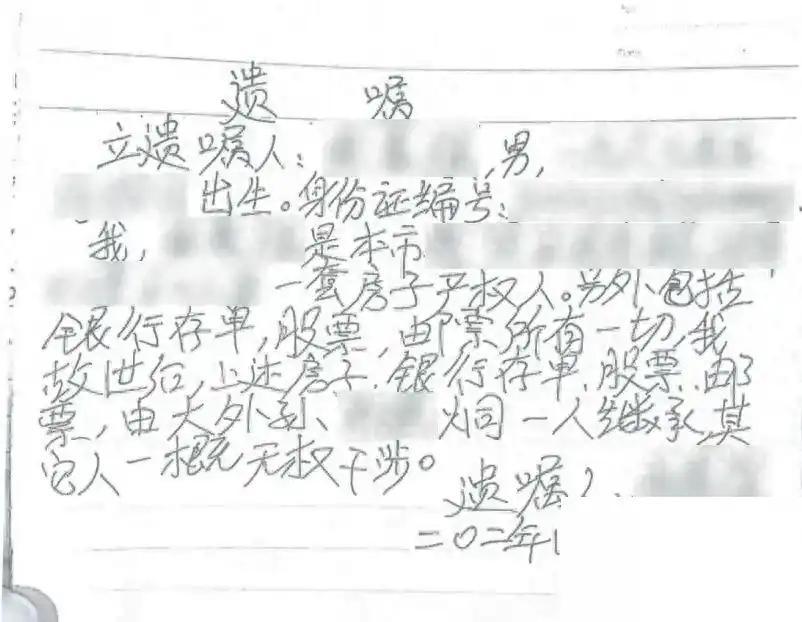 遗 嘱
立遗嘱人: ,男,
出生。身份证编号:
我, 是本市
一套房子产权人。另外包括
银行存单,股票,邮票所有一切,我
故世后,上述房子、银行存单、股票、邮
票,由大外孙 炯一人继承,其
它人一概无权干涉。
遗嘱人
二〇二年